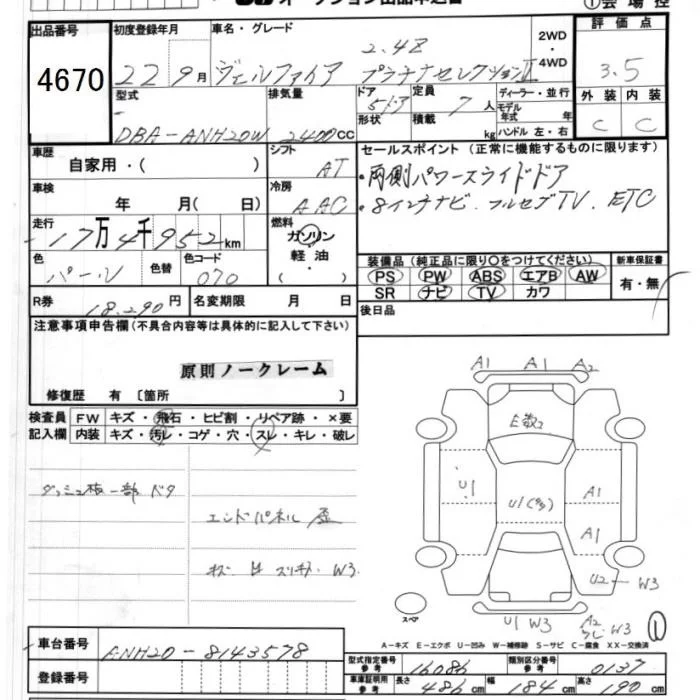 オークション出品申込書 ①会場控
出品番号 4670
初度登録年月 22 9月
車名・グレード 2.4Z
ヴェルファイア プラチナセレクションⅡ
2WD・4WD
評価点 3.5
外装 内装
C C
型式 DBA-ANH20W
排気量 2400CC
ドア形状 5ドア
定員 7人
積載 kg
ディーラー・並行
モデル年式 年
ハンドル 左・右
車歴 自家用・( )
シフト AT
セールスポイント (正常に機能するものに限ります)
・両側パワースライドドア
・8インチナビ、フルセグTV、ETC
車検 年 月( 日)
冷房 AAC
走行 17万4千952km
燃料 ガソリン 軽油・( )
色 パール
色替
色コード 070
装備品 (純正品に限り○をつけてください)
PS PW ABS エアB AW
SR ナビ TV カワ
新車保証書 有・無
R券 18,290円
名変期限 月 日
後日品
注意事項申告欄(不具合内容等は具体的に記入して下さい)
原則ノークレーム
修復歴 有〔箇所 〕
検査員記入欄
FW キズ・飛石・ヒビ割・リペア跡・×要
内装 キズ・汚レ・コゲ・穴・スレ・キレ・破レ
ダッシュ板一部ベタ
エンドパネル歪
A1 A1 A2
E数2
U1
U1(多)
A1
A1
U2 W3
U1 W3
A2
W3
①
スペア
A-キズ E-エクボ U-凹み W-補修跡 S-サビ C-腐食 XX-交換済
車台番号 ANH20-8143578
登録番号
型式指定番号 16086
類別区分番号 0137
車庫証明用 長さ 486cm 幅 184cm 高さ 190cm